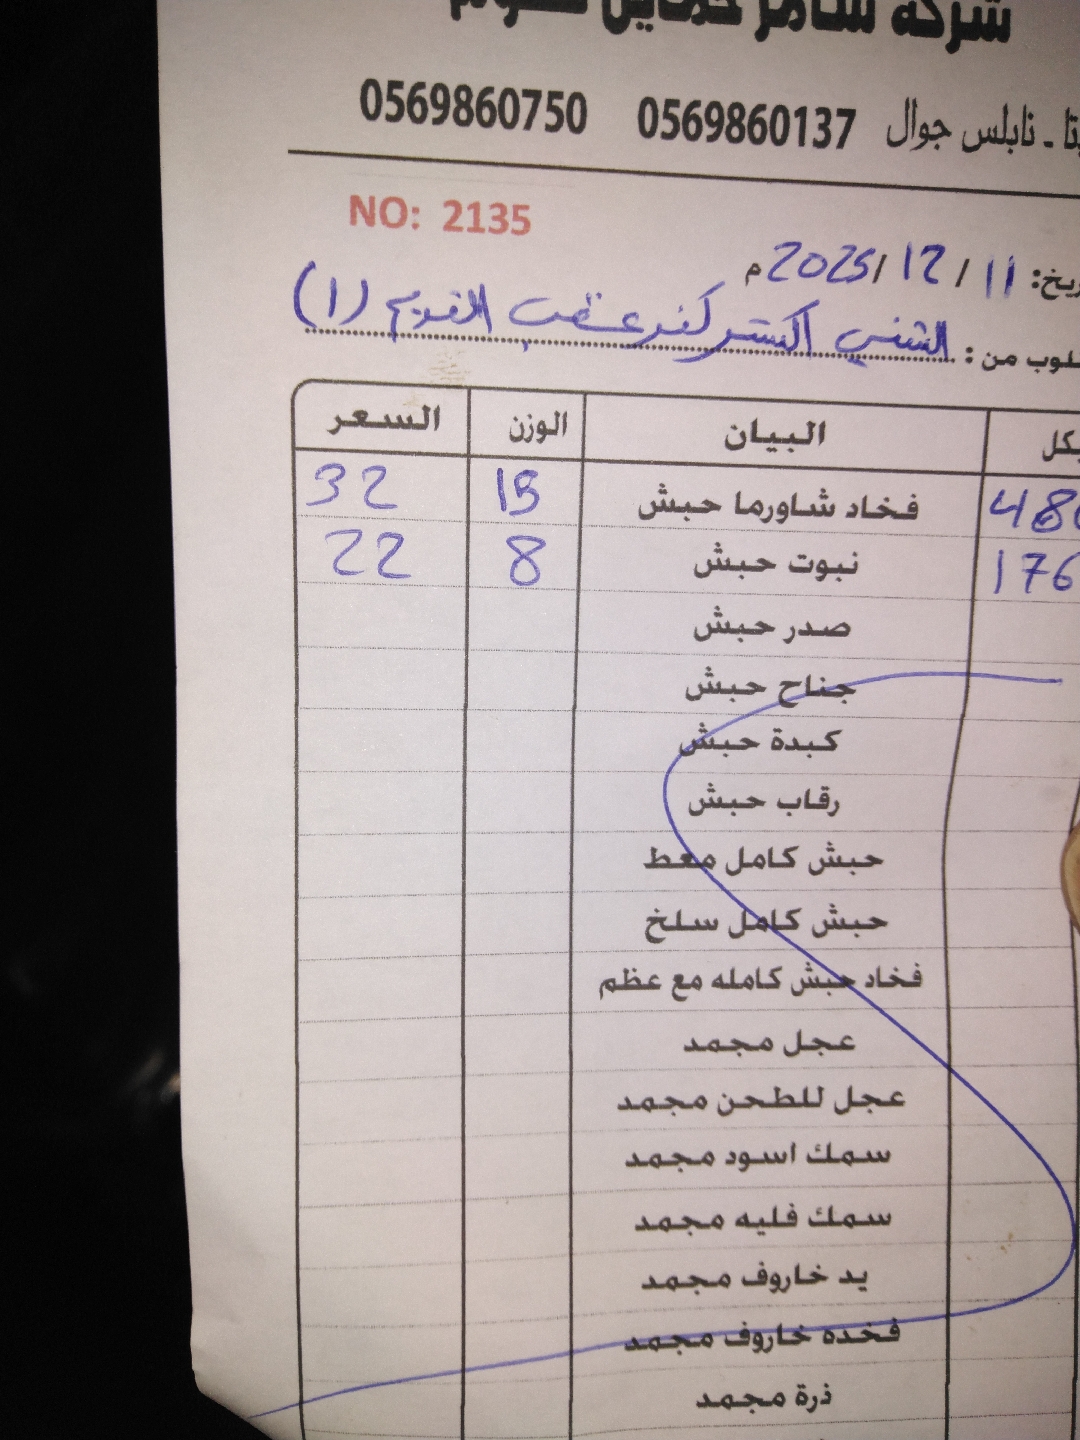 شركة سامر حمايل
نابلس جوال 0569860137 0569860750
NO: 2135
2025/12/11 م
من : الشني اكسترا كفر عقب القديم (1)
البيان الوزن السعر
480 فخاد شاورما حبش 15 32
176 نبوت حبش 8 22
صدر حبش
جناح حبش
كبدة حبش
رقاب حبش
حبش كامل معط
حبش كامل سلخ
فخاد حبش كامله مع عظم
عجل مجمد
عجل للطحن مجمد
سمك اسود مجمد
سمك فليه مجمد
يد خاروف مجمد
فخده خاروف مجمد
ذرة مجمد